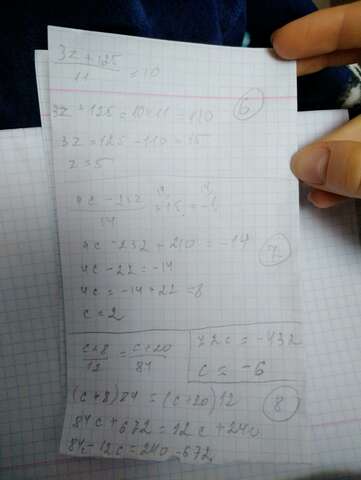 3z + 125
11
= 10
6
3z + 125 = 10 · 11 = 110
3z = 125 - 110 = 15
z = 5
4c - 232
14
+ 15 = -1
4c - 232 + 210 = -14
7
4c - 22 = -14
4c = -14 + 22 = 8
c = 2
c+8
12
= c+20
84
72c = -432
c = -6
(c+8)84 = (c+20)12
8
84c + 672 = 12c + 240
84c - 12c = 240 - 672